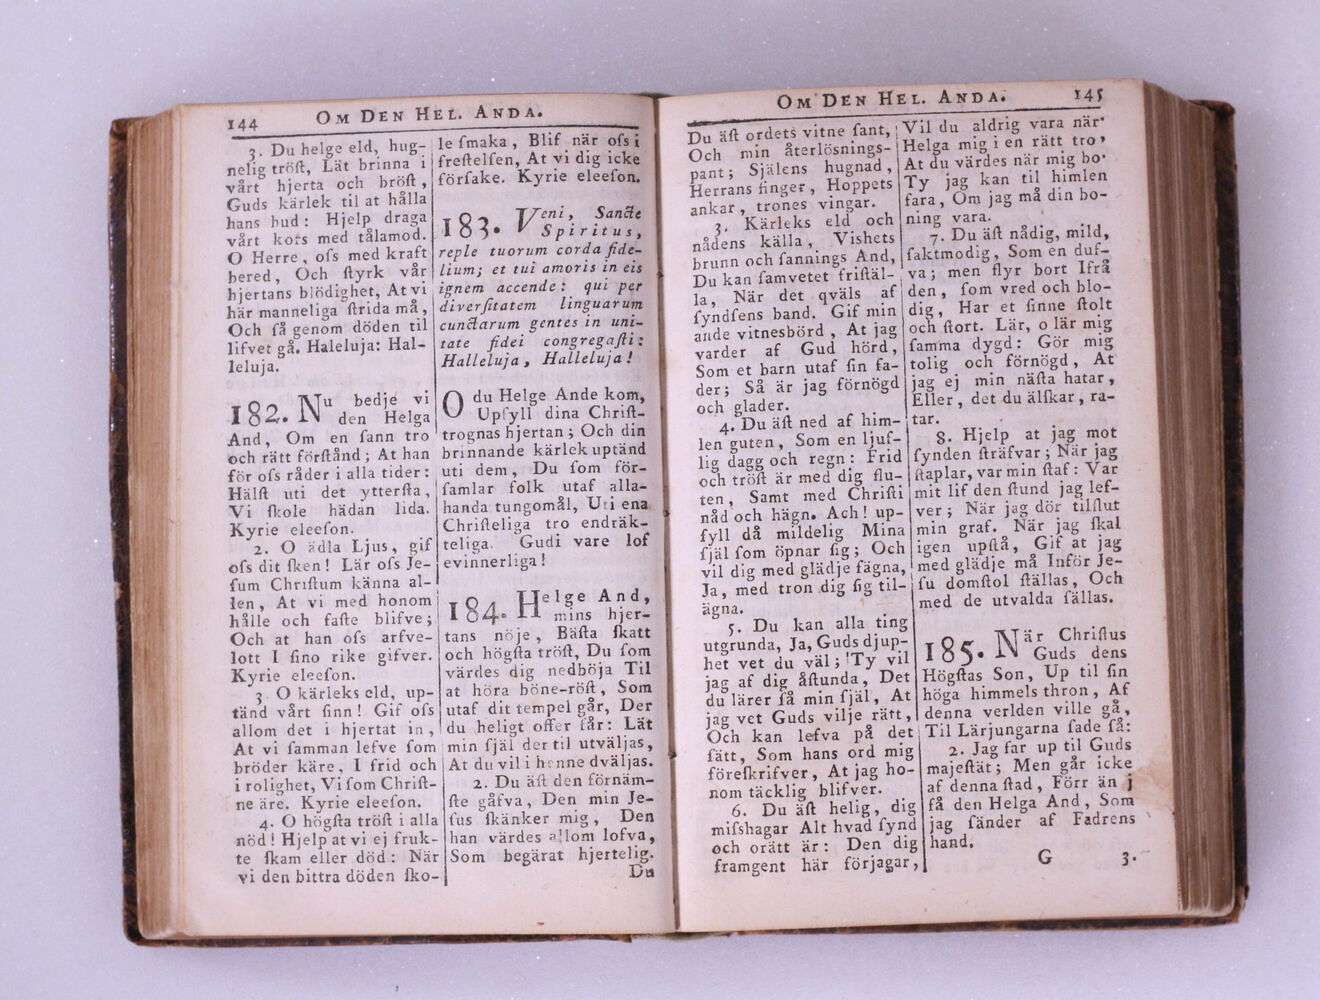 144
OM DEN HEL. ANDA.
3. Du helge eld, hug-
nelig tröſt, Lät brinna i
vårt hjerta och bröſt,
Guds kärlek til at hålla
hans bud: Hjelp draga
vårt kors med tålamod.
O Herre, oſs med kraft
bered, Och ſtyrk vår
hjertans blödighet, At vi
här manneliga ſtrida må,
Och ſå genom döden til
lifvet gå. Haleluja: Hal-
leluja.
182. Nu bedje vi
den Helga
And, Om en ſann tro
och rätt förſtånd; At han
för oſs råder i alla tider:
Hälſt uti det ytterſta,
Vi ſkole hädan lida.
Kyrie eleeſon.
2. O ädla Ljus, gif
oſs dit ſken! Lär oſs Je-
ſum Chriſtum känna al-
len, At vi med honom
hålle och faſte blifve;
Och at han oſs arfve-
lott I ſino rike gifver.
Kyrie eleeſon.
3. O kärleks eld, up-
tänd vårt ſinn! Gif oſs
allom det i hjertat in,
At vi ſamman lefve ſom
bröder käre, I frid och
i rolighet, Vi ſom Chriſt-
ne äre. Kyrie eleeſon.
4. O högſta tröſt i alla
nöd! Hjelp at vi ej fruk-
te ſkam eller död: När
vi den bittra döden ſko-
le ſmaka, Blif när oſs i
freſtelſen, At vi dig icke
förſake. Kyrie eleeſon.
183. Veni, Sancte
Spiritus,
reple tuorum corda fide-
lium; et tui amoris in eis
ignem accende: qui per
diverſitatem linguarum
cunctarum gentes in uni-
tate fidei congregaſti:
Halleluja, Halleluja!
O du Helge Ande kom,
Upfyll dina Chriſt-
trognas hjertan; Och din
brinnande kärlek uptänd
uti dem, Du ſom för-
ſamlar folk utaf alla-
handa tungomål, Uti ena
Chriſteliga tro endräk-
teliga. Gudi vare lof
evinnerliga!
184. Helge And,
mins hjer-
tans nöje, Bäſta ſkatt
och högſta tröſt, Du ſom
värdes dig nedböja Til
at höra böne-röſt, Som
utaf dit tempel går, Der
du heligt offer får: Lät
min ſjäl der til utväljas,
At du vil i henne dväljas.
2. Du äſt den förnäm-
ſte gåfva, Den min Je-
ſus ſkänker mig, Den
han värdes allom lofva,
Som begärat hjertelig.
Du
OM DEN HEL. ANDA.
145
Du äſt ordets vitne ſant,
Och min återlösnings-
pant; Själens hugnad,
Herrans finger, Hoppets
ankar, trones vingar.
3. Kärleks eld och
nådens källa, Vishets
brunn och ſannings And,
Du kan ſamvetet friſtäl-
la, När det qväls af
ſyndſens band. Gif min
ande vitnesbörd, At jag
varder af Gud hörd,
Som et barn utaf ſin fa-
der; Så är jag förnögd
och glader.
4. Du äſt ned af him-
len guten, Som en ljuf-
lig dagg och regn: Frid
och tröſt är med dig flu-
ten, Samt med Chriſti
nåd och hägn. Ach! up-
fyll då mildelig Mina
ſjäl ſom öpnar ſig; Och
vil dig med glädje fägna,
Ja, med tron dig ſig til-
ägna.
5. Du kan alla ting
utgrunda, Ja, Guds djup-
het vet du väl; Ty vil
jag af dig åſtunda, Det
du lärer ſå min ſjäl, At
jag vet Guds vilje rätt,
Och kan lefva på det
ſätt, Som hans ord mig
föreſkrifver, At jag ho-
nom täcklig blifver.
6. Du äſt helig, dig
miſshagar Alt hvad ſynd
och orätt är: Den dig
framgent här förjagar,
Vil du aldrig vara när.
Helga mig i en rätt tro,
At du värdes när mig bo.
Ty jag kan til himlen
fara, Om jag må din bo-
ning vara.
7. Du äſt nådig, mild,
ſaktmodig, Som en duf-
va; men flyr bort Ifrå
den, ſom vred och blo-
dig, Har et ſinne ſtolt
och ſtort. Lär, o lär mig
ſamma dygd: Gör mig
tolig och förnögd, At
jag ej min näſta hatar,
Eller, det du älſkar, ra-
tar.
8. Hjelp at jag mot
ſynden ſträfvar; När jag
ſtaplar, var min ſtaf: Var
mit lif den ſtund jag lef-
ver; När jag dör tilſlut
min graf. När jag ſkal
igen upſtå, Gif at jag
med glädje må Inför Je-
ſu domſtol ſtällas, Och
med de utvalda ſällas.
185. När Chriſtus
Guds dens
Högſtas Son, Up til ſin
höga himmels thron, Af
denna verlden ville gå,
Til Lärjungarna ſade ſå:
2. Jag far up til Guds
majeſtät; Men går icke
af denna ſtad, Förr än j
få den Helga And, Som
jag ſänder af Fadrens
hand.
G
3.